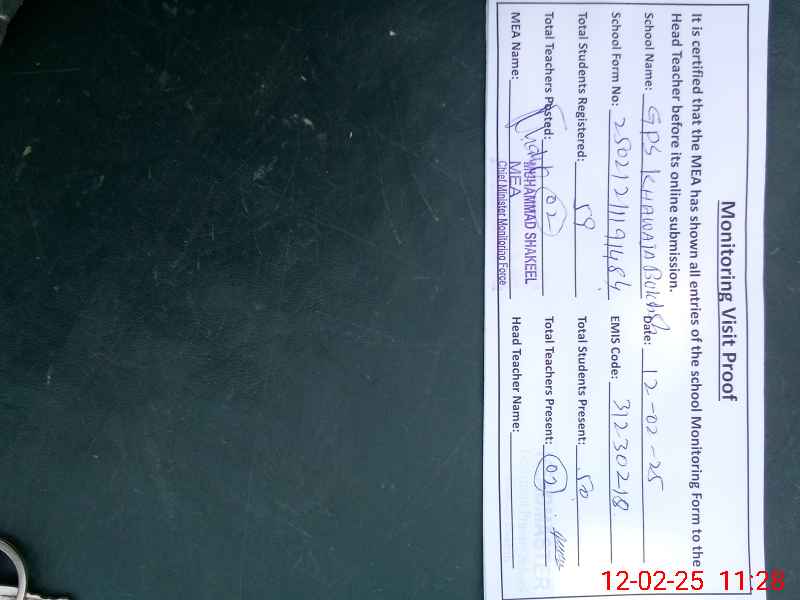 Monitoring Visit Proof
It is certified that the MEA has shown all entries of the school Monitoring Form to the
Head Teacher before its online submission.
School Name: GPS KHAWAJA Buksh Date: 12-02-25
School Form No: EMIS Code: 31230218
Total Students Registered: 59 Total Students Present: 50
Total Teachers Posted: 02 Total Teachers Present: 02
MEA Name: Head Teacher Name:
MUHAMMAD SHAKEEL
MEA
Chief Minister Monitoring Force
12-02-25 11:28